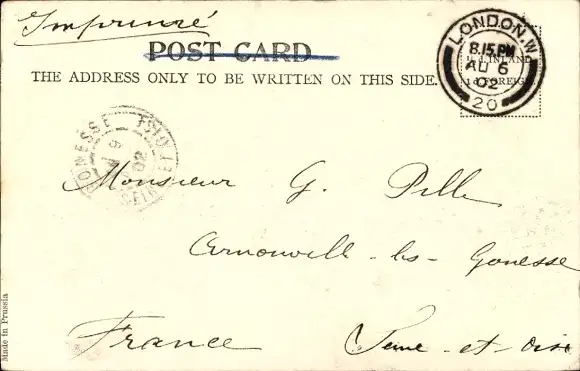 Imprimé
POST CARD
THE ADDRESS ONLY TO BE WRITTEN ON THIS SIDE.
LONDON. W
8.15. PM
AU 6
02
20
INLAND
FOREIGN
GONESSE
SEINE-ET-OISE
02
Monsieur G. Pille
Arnouville-les-Gonesse
France Seine-et-Oise
Made in Prussia